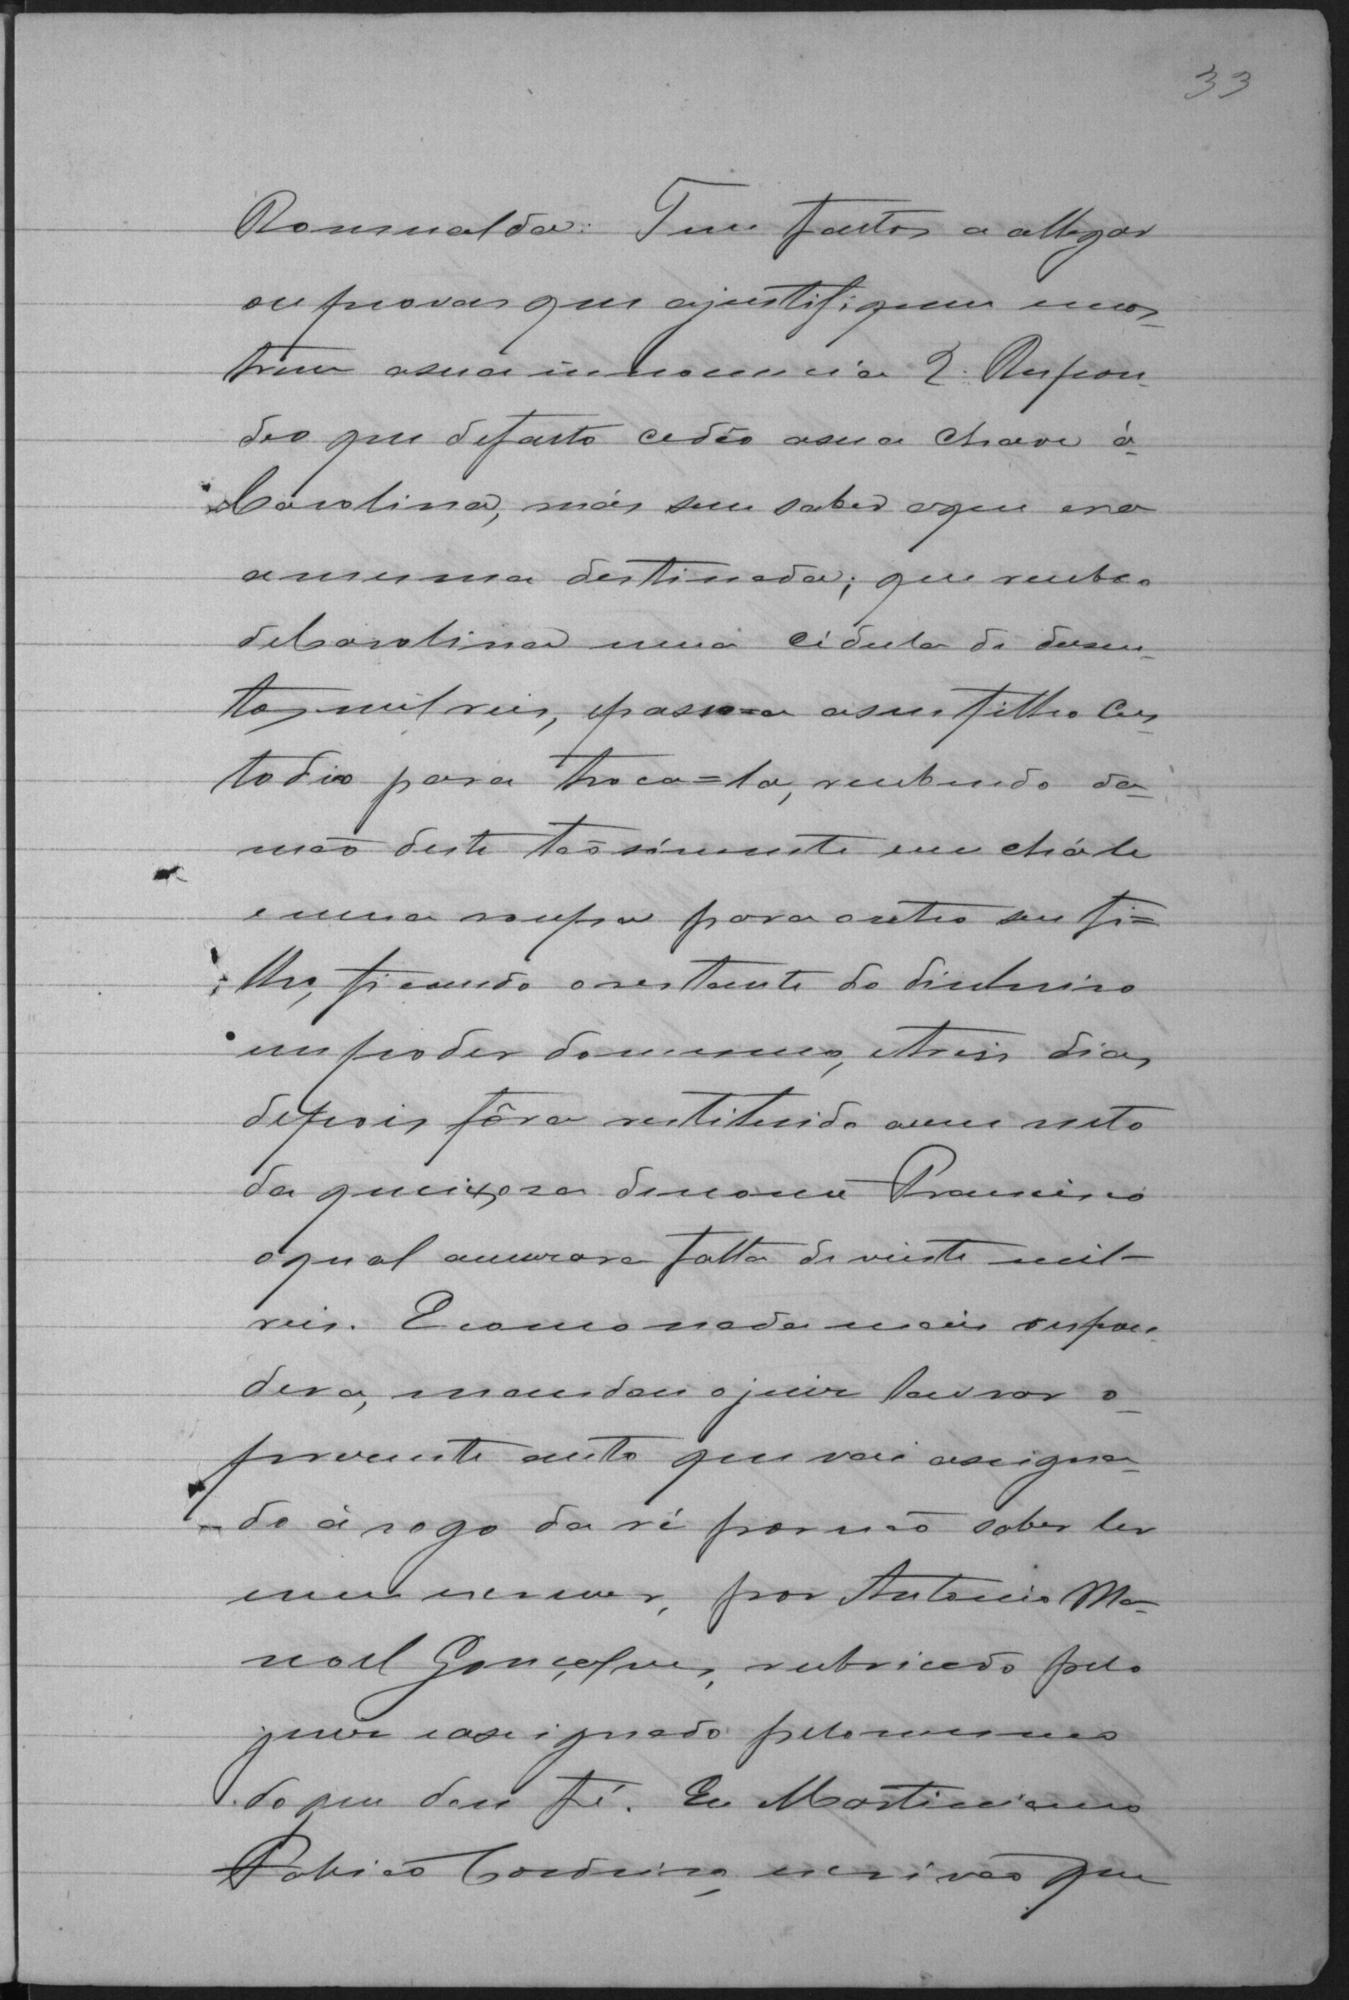 33
Romualda: Tem factos a allegar
ou provas que a justifiquem e mos-
trem a sua innocencia? Respon-
deo que de facto cedeo a sua chave á
Carolina, más sem saber o que era
a mesma destinada; que recebeo
de Carolina uma cédula de duzen-
tos mil reis, e passou a seu filho Cus-
todio para troca=la, recebendo da
mão deste tão sómente um chále
e uma roupa para outro seu fi=
lho, ficando o restante do dinheiro
em poder do mesmo, e treis dias
depois fôra restituido a um neto
da queixosa de nome Francisco
o qual accusara falta de vinte mil-
reis. E como nada mais respon-
dera, mandou o juiz lavrar o
presente auto que vai assigna-
do á rogo da ré por não saber ler
nem escrever, por Antonio Ma-
noel Gonçalves, rubricado pelo
juiz e assignado pelo mesmo
do que dou fé. Eu Martiniano
Cordeiro, escrivão que